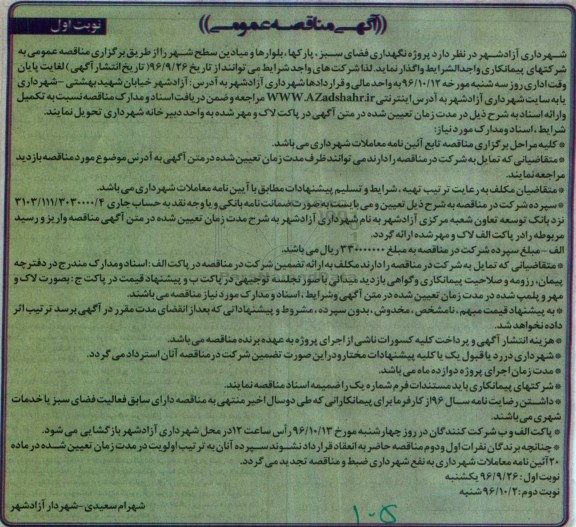 ((آگهی مناقصه عمومی))
نوبت اول
شهرداری آزادشهر در نظر دارد پروژه نگهداری فضای سبز، پارکها، بلوارها و میادین سطح شهر را از طریق برگزاری مناقصه عمومی به
شرکتهای پیمانکاری واجدالشرایط واگذار نماید. لذا شرکت های واجد شرایط می توانند از تاریخ ۹۶/۹/۲۶ (تاریخ انتشار آگهی) لغایت پایان
وقت اداری روز سه شنبه مورخه ۹۶/۱۰/۱۲ به واحد مالی و قراردادها شهرداری آزادشهر به آدرس: آزادشهر خیابان شهید بهشتی -شهرداری
یا به سایت شهرداری آزادشهر به آدرس اینترنتی WWW.AZadshahr.ir مراجعه و ضمن دریافت اسناد و مدارک مناقصه نسبت به تکمیل
و ارائه اسناد به شرح ذیل در مدت زمان تعیین شده در متن آگهی در پاکت لاک و مهر شده به واحد دبیرخانه شهرداری تحویل نمایند.
شرایط، اسناد و مدارک مورد نیاز:
* کلیه مراحل برگزاری مناقصه تابع آئین نامه معاملات شهرداری می باشد.
* متقاضیانی که تمایل به شرکت در مناقصه را دارند می توانند ظرف مدت زمان تعیین شده در متن آگهی به آدرس موضوع مورد مناقصه بازدید
مراجعه نمایند.
* متقاضیان مکلف به رعایت ترتیب تهیه، شرایط و تسلیم پیشنهادات مطابق با آیین نامه معاملات شهرداری می باشد.
* سپرده شرکت در مناقصه به شرح ذیل تعیین و می بایست به صورت ضمانت نامه بانکی و یا وجه نقد به حساب جاری ۳۱۰۳/۱۱۱/۳۰۳۰۰۰۰/۴
نزد بانک توسعه تعاون شعبه مرکزی آزادشهر به نام شهرداری آزادشهر به شرح مدت زمان تعیین شده در متن آگهی مناقصه واریز و رسید
مربوطه را در پاکت الف لاک و مهر شده ارائه گردد.
الف - مبلغ سپرده شرکت در مناقصه به مبلغ ۳۳۰۰۰۰۰۰۰ ریال می باشد.
* متقاضیانی که تمایل به شرکت در مناقصه را دارند مکلف به ارائه تضمین شرکت در مناقصه در پاکت الف: اسناد و مدارک مندرج در دفترچه
پیمان، رزومه و صلاحیت پیمانکاری و گواهی بازدید میدانی با صورتجلسه توجیهی در پاکت ب و پیشنهاد قیمت در پاکت ج: بصورت لاک و
مهر و پلمپ شده در مدت زمان تعیین شده در متن آگهی و شرایط، اسناد و مدارک مورد نیاز مناقصه می باشند.
* به پیشنهاد قیمت مبهم، نامشخص، مخدوش، بدون سپرده، مشروط و پیشنهاداتی که بعد از انقضای مدت مقرر در آگهی برسد ترتیب اثر
داده نخواهد شد.
* هزینه انتشار آگهی و پرداخت کلیه کسورات ناشی از اجرای پروژه به عهده برنده مناقصه می باشد.
* شهرداری در رد یا قبول یک یا کلیه پیشنهادات مختار و در این صورت تضمین شرکت در مناقصه آنان استرداد می گردد.
* مدت زمان اجرای پروژه دوازده ماه می باشد.
* شرکتهای پیمانکاری باید مستندات فرم شماره یک را ضمیمه اسناد مناقصه نمایند.
* داشتن رضایت نامه سال ۹۶ از کارفرما برای پیمانکارانی که طی دو سال اخیر منتهی به مناقصه دارای سابق فعالیت فضای سبز یا خدمات
شهری می باشند.
* پاکت الف و ب شرکت کنندگان در روز چهارشنبه مورخ ۹۶/۱۰/۱۳ رأس ساعت ۱۲ در محل شهرداری آزادشهر بازگشایی می شود.
* چنانچه برندگان نفرات اول و دوم مناقصه حاضر به انعقاد قرارداد نشوند سپرده آنان به ترتیب اولویت در مدت زمان تعیین شده در ماده
۲۰ آئین نامه معاملات شهرداری به نفع شهرداری ضبط و مناقصه تجدید می گردد.
نوبت اول: ۹۶/۹/۲۶ یکشنبه
نوبت دوم: ۹۶/۱۰/۲ شنبه
شهرام سعیدی -شهردار آزادشهر
۱۰۵